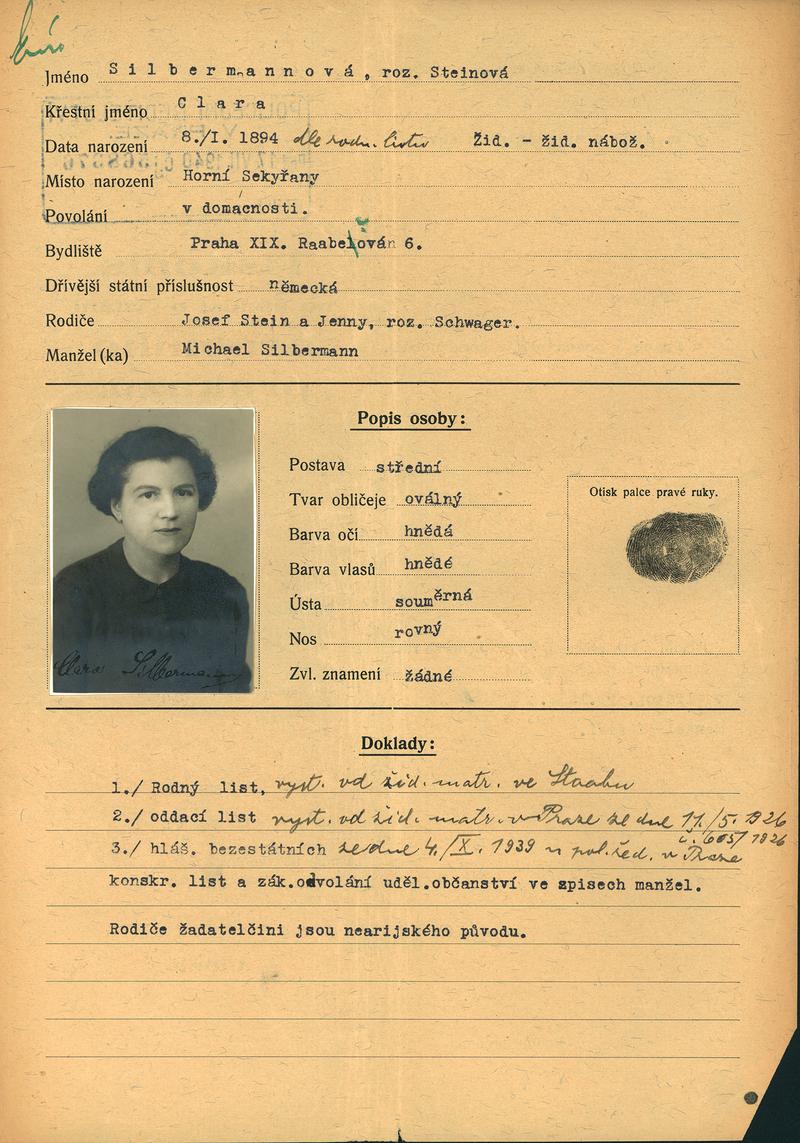 Jméno Silbermannová, roz. Steinová
Křestní jméno Clara
Data narození 8./I. 1894 dle rodn. listu Žid. - žid. nábož.
Místo narození Horní Sekyřany
Povolání v domácnosti.
Bydliště Praha XIX. Raabešován 6.
Dřívější státní příslušnost německá
Rodiče Josef Stein a Jenny, roz. Schwager.
Manžel (ka) Michael Silbermann
Popis osoby:
Postava střední
Tvar obličeje oválný
Barva očí hnědá
Barva vlasů hnědé
Ústa souměrná
Nos rovný
Zvl. znamení žádné
Otisk palce pravé ruky.
Clara Silbermann
Doklady:
1./ Rodný list, vyst. od žid. matr. ve Staabu
2./ oddací list vyst. od žid. matr. v Praze ze dne 11/5. 1926
č. 605/1926
3./ hláš. bezestátních ze dne 4./X. 1939 u pol. řed. v Praze
konskr. list a zák.odvolání uděl.občanství ve spisech manžel.
Rodiče žadatelčini jsou nearijského původu.